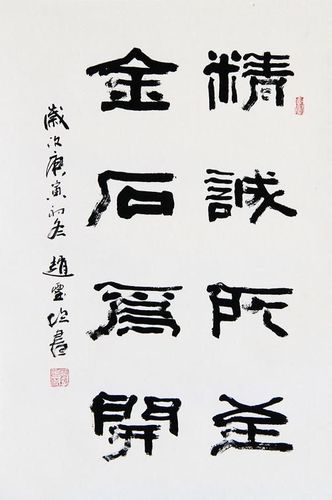 精誠所至
金石爲開
歲次庚寅初冬 趙 書